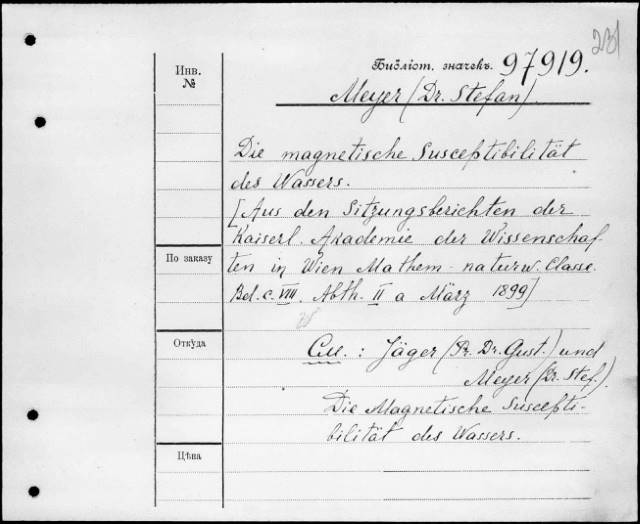 231
Инв.
№
Библіот. значекъ. 97919.
Meyer (Dr. Stefan).
Die magnetische Susceptibilität
des Wassers.
[Aus den Sitzungsberichten der
Kaiserl. Akademie der Wissenschaf-
ten in Wien Mathem-naturw. Classe.
Bd. C. VIII. Abth. II a März 1899]
По заказу
Откуда
См. : Jäger (Pr. Dr. Gust.) und
Meyer (Dr. Stef.).
Die Magnetische Suscepti-
bilität des Wassers.
Цѣна